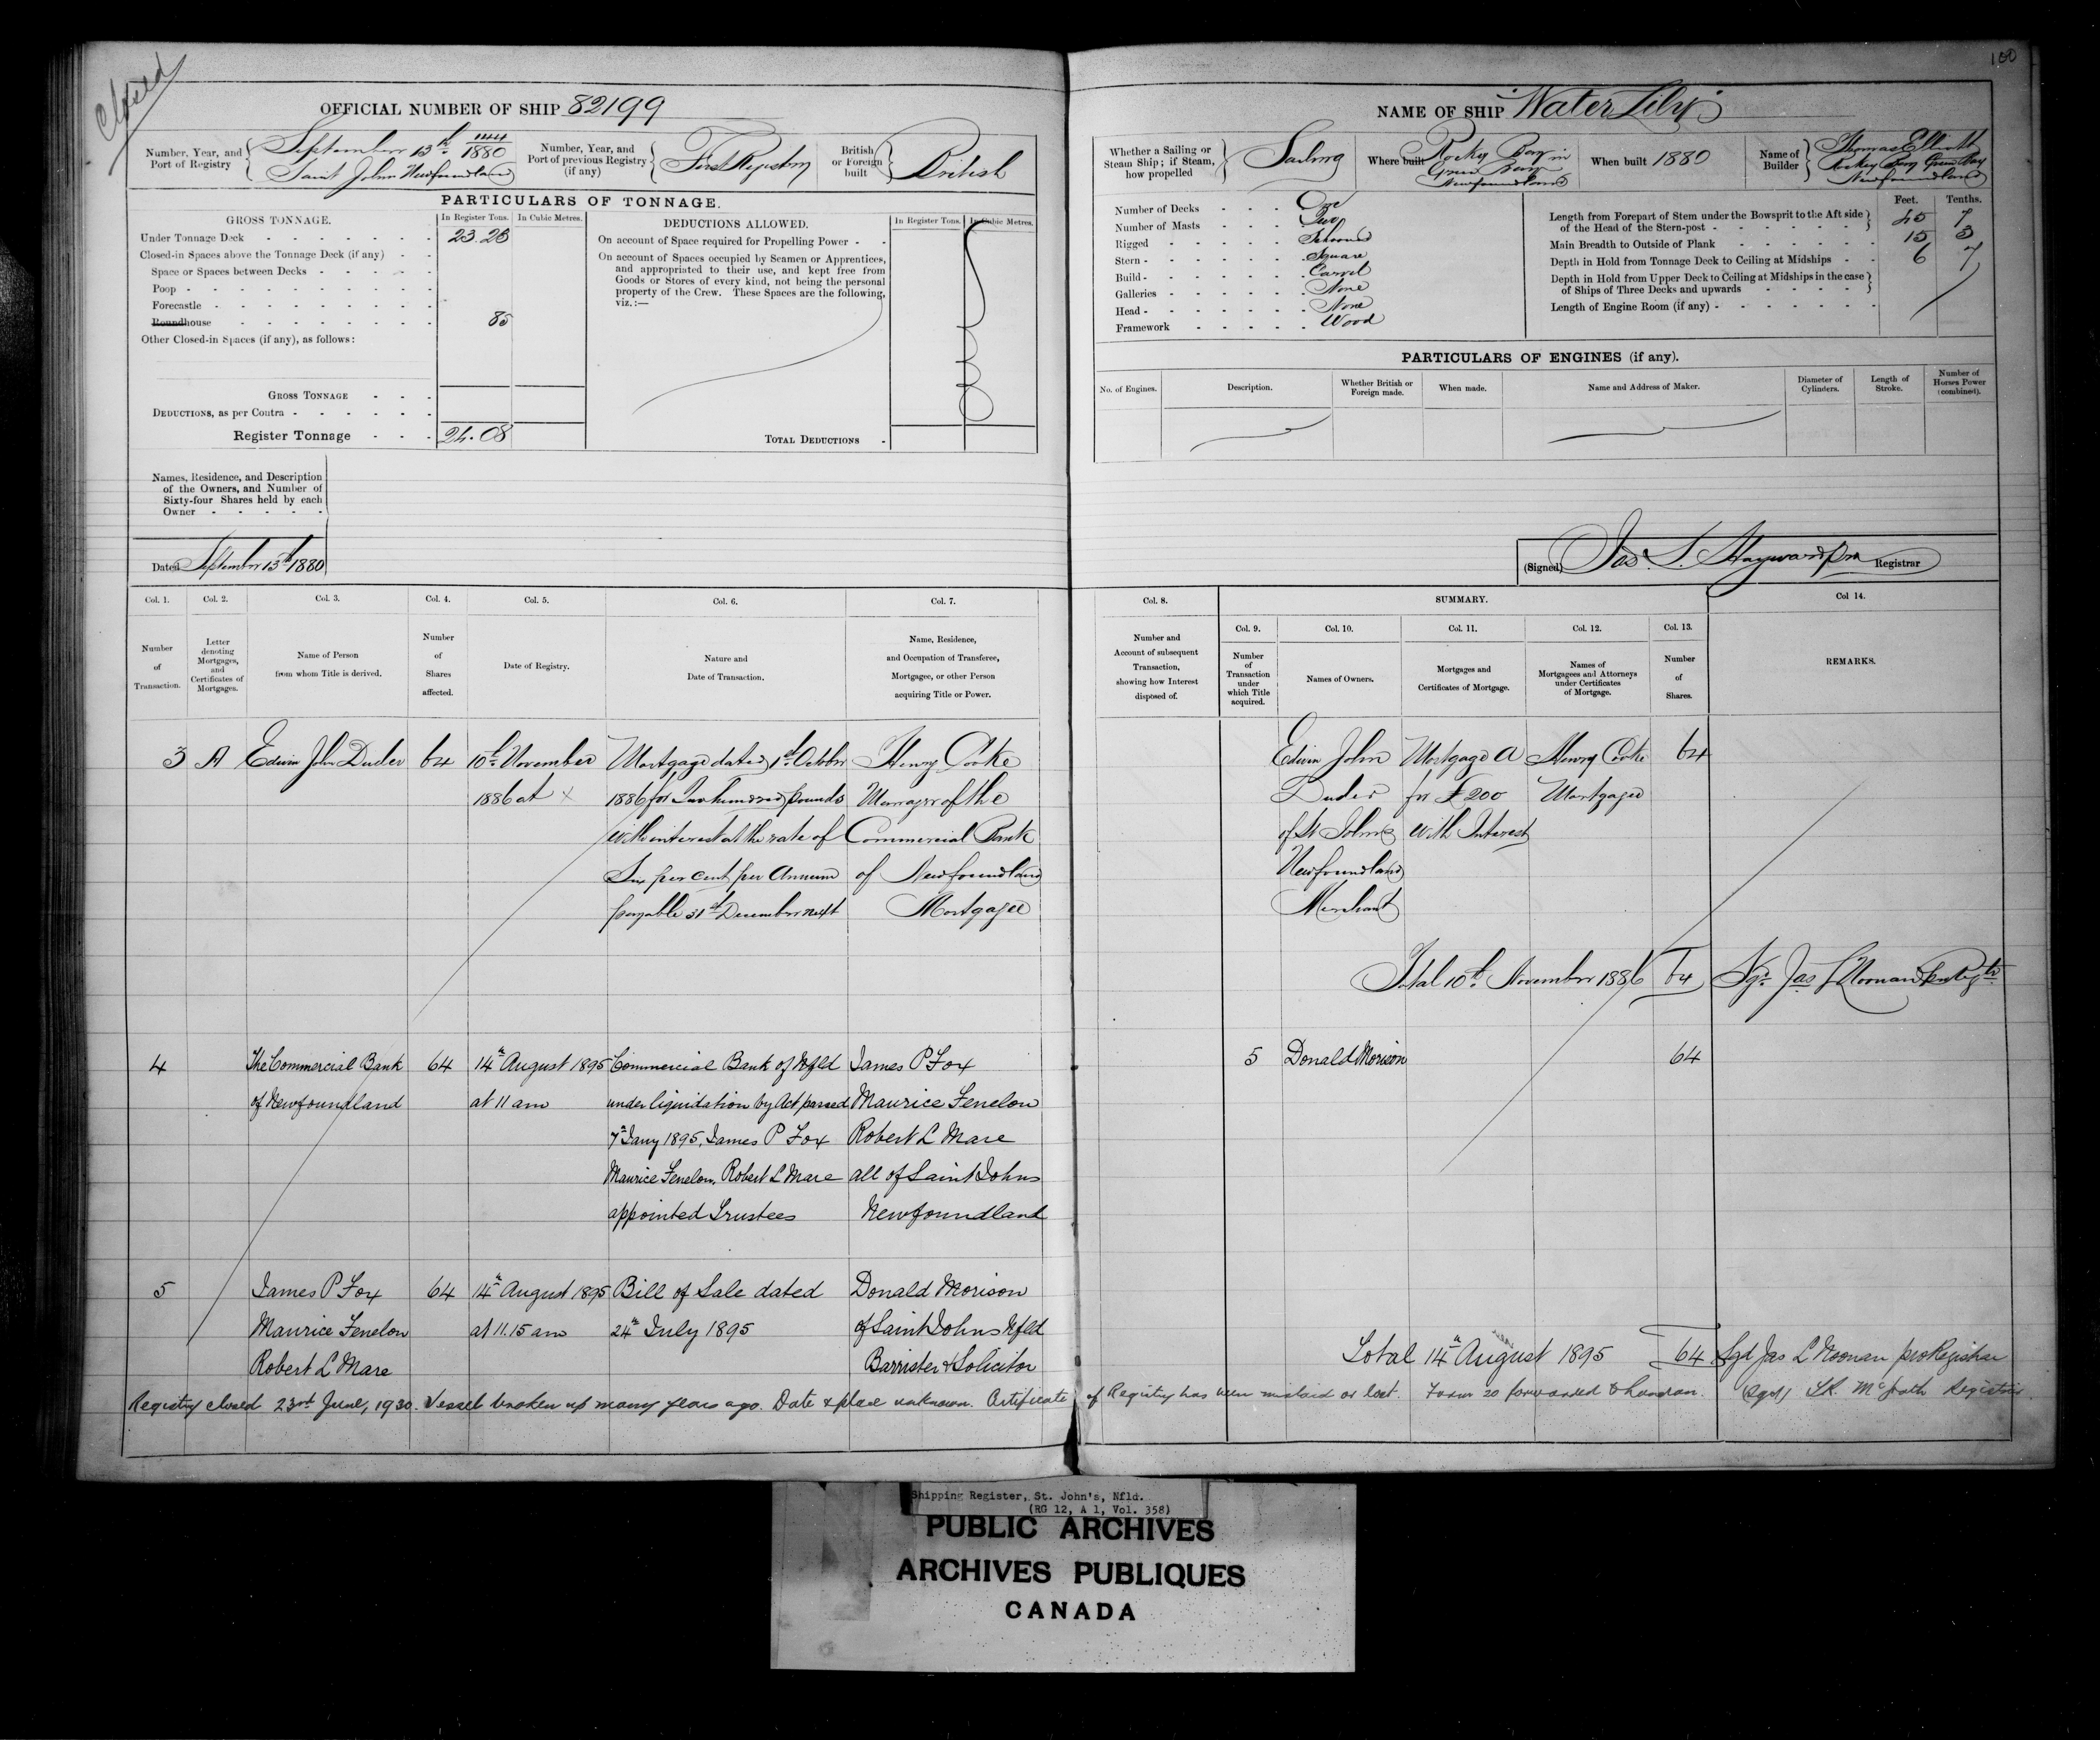 Closed
100
OFFICIAL NUMBER OF SHIP 82199
NAME OF SHIP "Water Lily"
Number, Year, and Port of Registry
September 13th 1880
Saint Johns Newfoundland
Number, Year, and Port of previous Registry (if any)
First Registry
British or Foreign built
British
Whether a Sailing or Steam Ship; if Steam, how propelled
Sailing
Where built
Rocky Bay in
Green Bay
Newfoundland
When built 1880
Name of Builder
Thomas Elliott
Rocky Bay Green Bay
Newfoundland
PARTICULARS OF TONNAGE.
GROSS TONNAGE.
In Register Tons.
In Cubic Metres.
Under Tonnage Deck 23.23
Closed-in Spaces above the Tonnage Deck (if any)
Space or Spaces between Decks
Poop
Forecastle
Roundhouse 85
Other Closed-in Spaces (if any), as follows:
GROSS TONNAGE
DEDUCTIONS, as per Contra
Register Tonnage 24.08
DEDUCTIONS ALLOWED.
In Register Tons.
In Cubic Metres.
On account of Space required for Propelling Power
On account of Spaces occupied by Seamen or Apprentices,
and appropriated to their use, and kept free from
Goods or Stores of every kind, not being the personal
property of the Crew. These Spaces are the following,
viz.:—
TOTAL DEDUCTIONS
Number of Decks One
Number of Masts Two
Rigged Schooner
Stern Square
Build Carvel
Galleries None
Head None
Framework Wood
Feet. Tenths.
Length from Forepart of Stem under the Bowsprit to the Aft side
of the Head of the Stern-post 45 7
Main Breadth to Outside of Plank 15 3
Depth in Hold from Tonnage Deck to Ceiling at Midships 6 7
Depth in Hold from Upper Deck to Ceiling at Midships in the case
of Ships of Three Decks and upwards
Length of Engine Room (if any)
PARTICULARS OF ENGINES (if any).
No. of Engines.
Description.
Whether British or Foreign made.
When made.
Name and Address of Maker.
Diameter of Cylinders.
Length of Stroke.
Number of Horses Power (combined).
Names, Residence, and Description
of the Owners, and Number of
Sixty-four Shares held by each
Owner
Dated September 13th 1880
(Signed) Jas. S. Hayward pro Registrar
Col. 1. Number of Transaction.
Col. 2. Letter denoting Mortgages, and Certificates of Mortgages.
Col. 3. Name of Person from whom Title is derived.
Col. 4. Number of Shares affected.
Col. 5. Date of Registry.
Col. 6. Nature and Date of Transaction.
Col. 7. Name, Residence, and Occupation of Transferee, Mortgagee, or other Person acquiring Title or Power.
Col. 8. Number and Account of subsequent Transaction, showing how Interest disposed of.
SUMMARY.
Col. 9. Number of Transaction under which Title acquired.
Col. 10. Names of Owners.
Col. 11. Mortgages and Certificates of Mortgage.
Col. 12. Names of Mortgagees and Attorneys under Certificates of Mortgage.
Col. 13. Number of Shares.
Col 14. REMARKS.
3 A Edwin John Duder 64 10th November Mortgage dated 1st October Henry Cooke
1886 at x 1886 for Two hundred pounds Manager of the
with interest at the rate of Commercial Bank
Six per cent per Annum of Newfoundland
payable 31st December next Mortgagee
Edwin John Mortgage A Henry Cooke 64
Duder for £200 Mortgagee
of St Johns with Interest
Newfoundland
Merchant
Total 10th November 1886 64 Sgd Jas L Noonan
4 The Commercial Bank 64 14th August 1895 Commercial Bank of Nfld James P Fox
of Newfoundland at 11 am under liquidation by Act passed Maurice Fenelon
7th Jany 1895, James P Fox Robert L Mare
Maurice Fenelon, Robert L Mare all of Saint Johns
appointed Trustees Newfoundland
5 Donald Morison 64
5 James P Fox 64 14th August 1895 Bill of Sale dated Donald Morison
Maurice Fenelon at 11.15 am 24th July 1895 of Saint Johns Nfld
Robert L Mare Barrister & Solicitor
Total 14th August 1895 64 Sgd Jas L Noonan pro Registrar
Registry closed 23rd June, 1930. Vessel broken up many years ago. Date & place unknown. Certificate of Registry has been mislaid or lost. Form 20 forwarded to London. (Sgd) McGrath Registrar.
Shipping Register, St. John's, Nfld.
(RG 12, A 1, Vol. 358)
PUBLIC ARCHIVES
ARCHIVES PUBLIQUES
CANADA